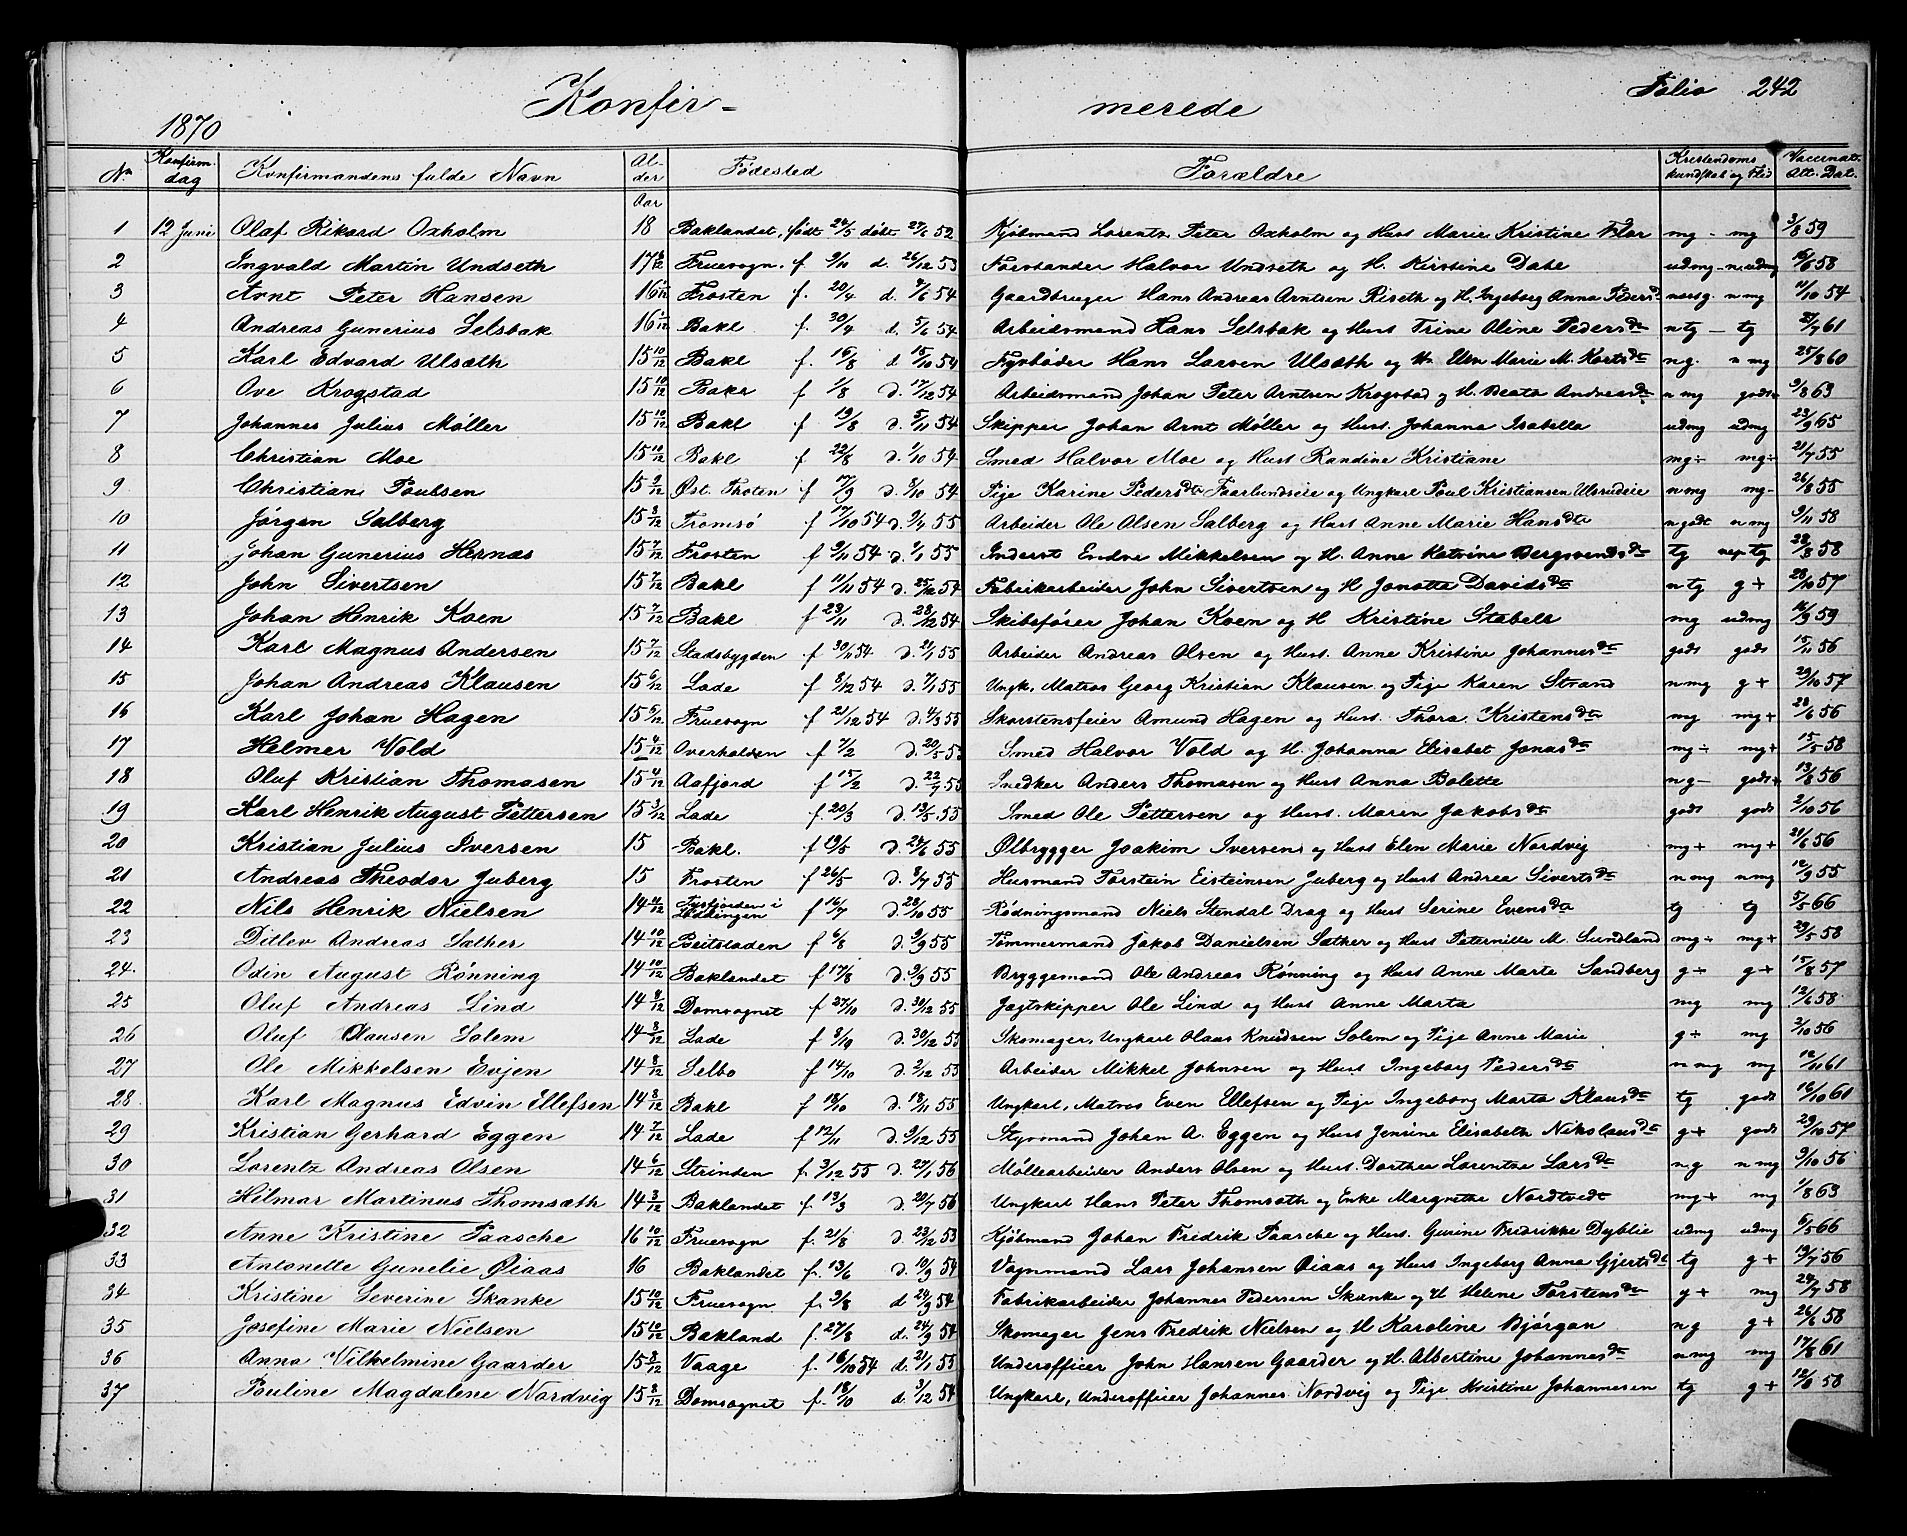 Konfir-
merede
Folio 242
1870
No Konfirm. dag Konfirmandens fulde Navn Al-der Fødested Forældre Kristendoms kundskab og Flid Vaccinat. Att. Dat.
Aar
1 12 Juni Olaf Rikard Oxholm 18 Baklandet, født 24/5 døbt 52 Kjøbmand Lorentz Peter Oxholm og Hust Marie Kristine Flor mg - mg 3/8 59
2 Ingvald Martin Undseth 17 6/12 Fruesogn. f. 9/11 d. 26/12 53 Forstander Halvor Undseth og H. Kirstine Dahl udmg - n. udmg 16/6 58
3 Arnt Peter Hansen Frosten f. 20/4 d. 4/6 54 Gaardbruger Hans Andreas Arntsen Riseth og H. Ingeborg Anna Pedersdr n mg 11/10 54
4 Andreas Gunerius Selsbak 16 1/12 Bakl f. 30/4 d. 5/6 54 Arbeidsmand Hans Selsbak og Hust Trine Oline Pedersdtr ntg - tg 27/7 61
5 Karl Edvard Ulsæth 15 10/12 Bakl f. 16/8 d 15/10 54 Fyrbøder Hans Larsen Ulsæth og H. Elen Marie M. Kortsdtr ng. n mg 25/8 60
6 Ove Krogstad 15 10/12 Bakl f 1/8 d. 17/12 54 Arbeidsmand Johan Peter Arntsen Krogstad og H. Beata Andreasdtr n mg godt 9/8 63
7 Johannes Julius Møller 15 10/12 Bakl f 19/8 d. 5/11 54 Skipper Johan Arnt Møller og Hust. Johanna Isabella udmg udmg 23/9 65
8 Christian Moe 15 10/12 Bakl f 22/8 d. 1/10 54 Smed Halvor Moe og Hust Randine Kristiane mg÷ mg÷ 21/7 55
9 Christian Poulsen 15 9/12 Øst. Thoten f 17/9 d. 8/10 54 Pige Karine Pedersdtr Faarlundseie og Ungkarl Poul Kristiansen Ulsrudeie n mg mg- 26/8 55
10 Jørgen Salberg 15 8/12 Tromsø f 17/10 54 d. 9/4 55 Arbeider Ole Olsen Salberg og Hust Anne Marie Hansdtr n godt n mg 9/11 58
11 Johan Gunerius Hernæs 15 7/12 Frosten f 9/11 54 d. 1/1 55 Inderst Endre Mikkelsen og H. Anne Katrine Bergsvendsdtr tg tg 28/8 58
12 John Sivertsen 15 7/12 Bakl f 11/11 54 d. 25/12 54 Fabrikarbeider John Sivertsen og H Jonetta Davidsdtr n tg g + 28/10 57
13 Johan Henrik Koen 15 7/12 Bakl f 23/11 d. 28/12 54 Skibsfører Johan Koen og H Kristine Stabell mg udmg 16/9 59
14 Karl Magnus Andersen 15 7/12 Stadsbygden f 30/11 54 d. 21/1 55 Arbeider Andreas Olsen og Hust. Anne Kristine Johannesdtr godt godt 15/11 56
15 Johan Andreas Klausen 15 6/12 Lade f 8/12 54 d. 7/1 55 Ungk, Matros Georg Kristian Klausen og Pige Karen Strand n mg g + 29/10 57
16 Karl Johan Hagen 15 5/12 Fruesogn f 21/12 54 d. 4/3 55 Skorstensfeier Amund Hagen og Hust. Thora Kristensdtr mg mg+ 28/6 56
17 Helmer Vold 15 4/12 Overhalden f 7/2 d. 20/5 55 Smed Halvor Vold og H. Johanna Elisabet Jonasdtr mg÷ mg+ 15/5 58
18 Oluf Kristian Thomasen 15 4/12 Aafjord f 15/2 d. 22/7 55 Snedker Anders Thomasen og Hust Anna Bolette n g - godt 13/8 56
19 Karl Henrik August Pettersen 15 3/12 Lade f. 20/3 d. 13/5 55 Smed Ole Pettersen og Hust. Maren Jakobsdtr godt godt 2/10 56
20 Kristian Julius Iversen 15 Bakl. f 19/5 d. 24/6 55 Ølbrygger Joakim Iversen og Hust Elen Marie Nordvig mg+ mg+ 21/6 56
21 Andreas Theodor Juberg 15 Frosten f 26/5 d. 8/7 55 Husmand Torstein Eisteinsen Juberg og Hust Andrea Sivertsdtr n mg n mg 12/9 55
22 Nils Henrik Nielsen Tysfjorden i Lødingen f 16/7 d. 28/10 55 Rødningsmand Niels Stendal Drag og Hust Serine Evensdtr tg tg 5/5 66
23 Ditlev Andreas Sæther 14 10/12 Beitstaden f 6/8 d. 9/9 55 Tømmermand Jakob Danielsen Sæther og Hust Peternille M. Sundland mg÷ mg+ 29/5 58
24. Odin August Rønning 14 10/12 Baklandet f 17/8 d. 9/9 55 Bryggemand Ole Andreas Rønning og Hust Anne Marta Sandberg g + g + 15/8 57
25 Oluf Andreas Lind Domsognet f 27/10 d. 30/12 55 Jagtskipper Ole Lind og Hust Anne Marta mg mg 13/6 58
26 Oluf Olausen Solem 14 8/12 Lade d. 30/12 55 Skomager, Ungkarl Olaus Knudsen Solem og Pige Anne Marie g + mg 2/10 56
27 Ole Mikkelsen Evjen 14 8/12 Selbo f 14/10 d. 2/12 55 Arbeider Mikkel Johnsen og Hust Ingeborg Pedersdtr n mg mg 12/11 61
28 Karl Magnus Edvin Ellefsen 14 8/12 Bakl f 18/10 d. 18/11 55 Ungkarl, Matros Even Ellefsen og Pige Ingeborg Marta Klausdtr tg godt 16/10 60
29 Kristian Gerhard Eggen 14 7/12 Lade f 12/11 d. 9/12 55 Styrmand Johan A. Eggen og Hust Jensine Elisabeth Nikolausdtr g + godt 29/10 57
30 Lorentz Andreas Olsen 14 6/12 Strinden f. 3/12 55 d. 27/1 56 Møllearbeider Anders Olsen og Hust. Dorthea Lorentze Larsdtr n g n mg 9/10 56
31 Hilmar Martinus Thomsæth 14 3/12 Baklandet f 13/3 d. 20/7 56 Ungkarl Hans Peter Thomsæth og Enke Margrethe Nordtvedt mg+ mg 1/8 63
32 Anne Kristine Paasche 16 10/12 Fruesogn f. 21/8 d. 23/12 53 Kjøbmand Johan Fredrik Paasche og Hust. Gurine Fredrikke Dyblie udmg udmg 5/5 66
33 Antonette Gunelie Øiaas 16 Baklandet f. 13/6 d. 10/9 54 Vognmand Lars Johansen Øiaas og Hust Ingeborg Anna Gjertsdtr tg g + 19/7 56
34 Kristine Severine Skanke 15 10/12 Fruesogn f. 9/8 d 24/9 54 Fabrikarbeider Johannes Pedersen Skanke og H Helene Torstensdtr g + mg 24/7 58
35 Josefine Marie Nielsen 15 10/12 Bakland f. 27/8 d. 24/9 54 Skomager Jens Fredrik Nielsen og H Karoline Bjørgan n g g + 26/6 58
36 Anna Vilhelmine Gaarder 15 8/12 Vaage f. 16/10 54 d. 21/1 55 Underofficer John Hansen Gaarder og H. Albertine Johannesdtr n mg mg 17/8 61
37 Pauline Magdalene Nordvig 15 8/12 Domsognet f. 18/10 d. 3/12 54 Ungkarl, Underofficer Johannes Nordvig og Pige Kristine Johannesen tg g + 58